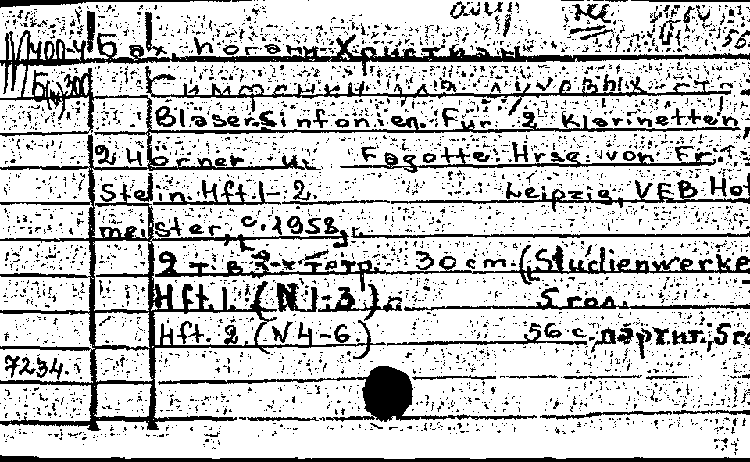 М400-4 Бах, Иоганн Христиан
Б(н)300 Симфонии для духовых
Bläsersinfonien. Für 2 Klarinetten,
2 Hörner u. Fagotte. Hrsg. von Fr.
Stein. Hft. 1-2. Leipzig, VEB Hof
meister, c. 1958,
2 т. в 3-х тетр. 30 cm. (Studienwerke
Hft. 1. (N 1-3) 5 гол.
Hft. 2. (N 4-6.) 56 с. партит., 5 го
7234.